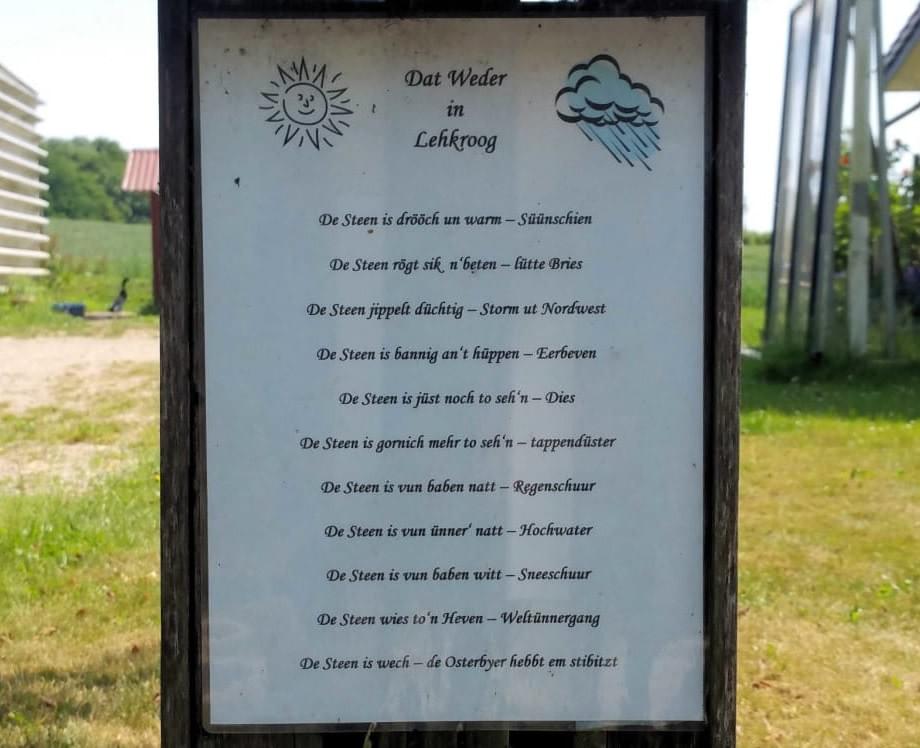 Dat Weder
in
Lehkroog
De Steen is drööch un warm – Süünschien
De Steen rögt sik n'beten – lütte Bries
De Steen jippelt düchtig – Storm ut Nordwest
De Steen is bannig an't hüppen – Eerbeven
De Steen is jüst noch to seh'n – Dies
De Steen is gornich mehr to seh'n – tappendüster
De Steen is vun baben natt – Regenschuur
De Steen is vun ünner' natt – Hochwater
De Steen is vun baben witt – Sneeschuur
De Steen wies to'n Heven – Weltünnergang
De Steen is wech – de Osterbyer hebbt em stibitzt